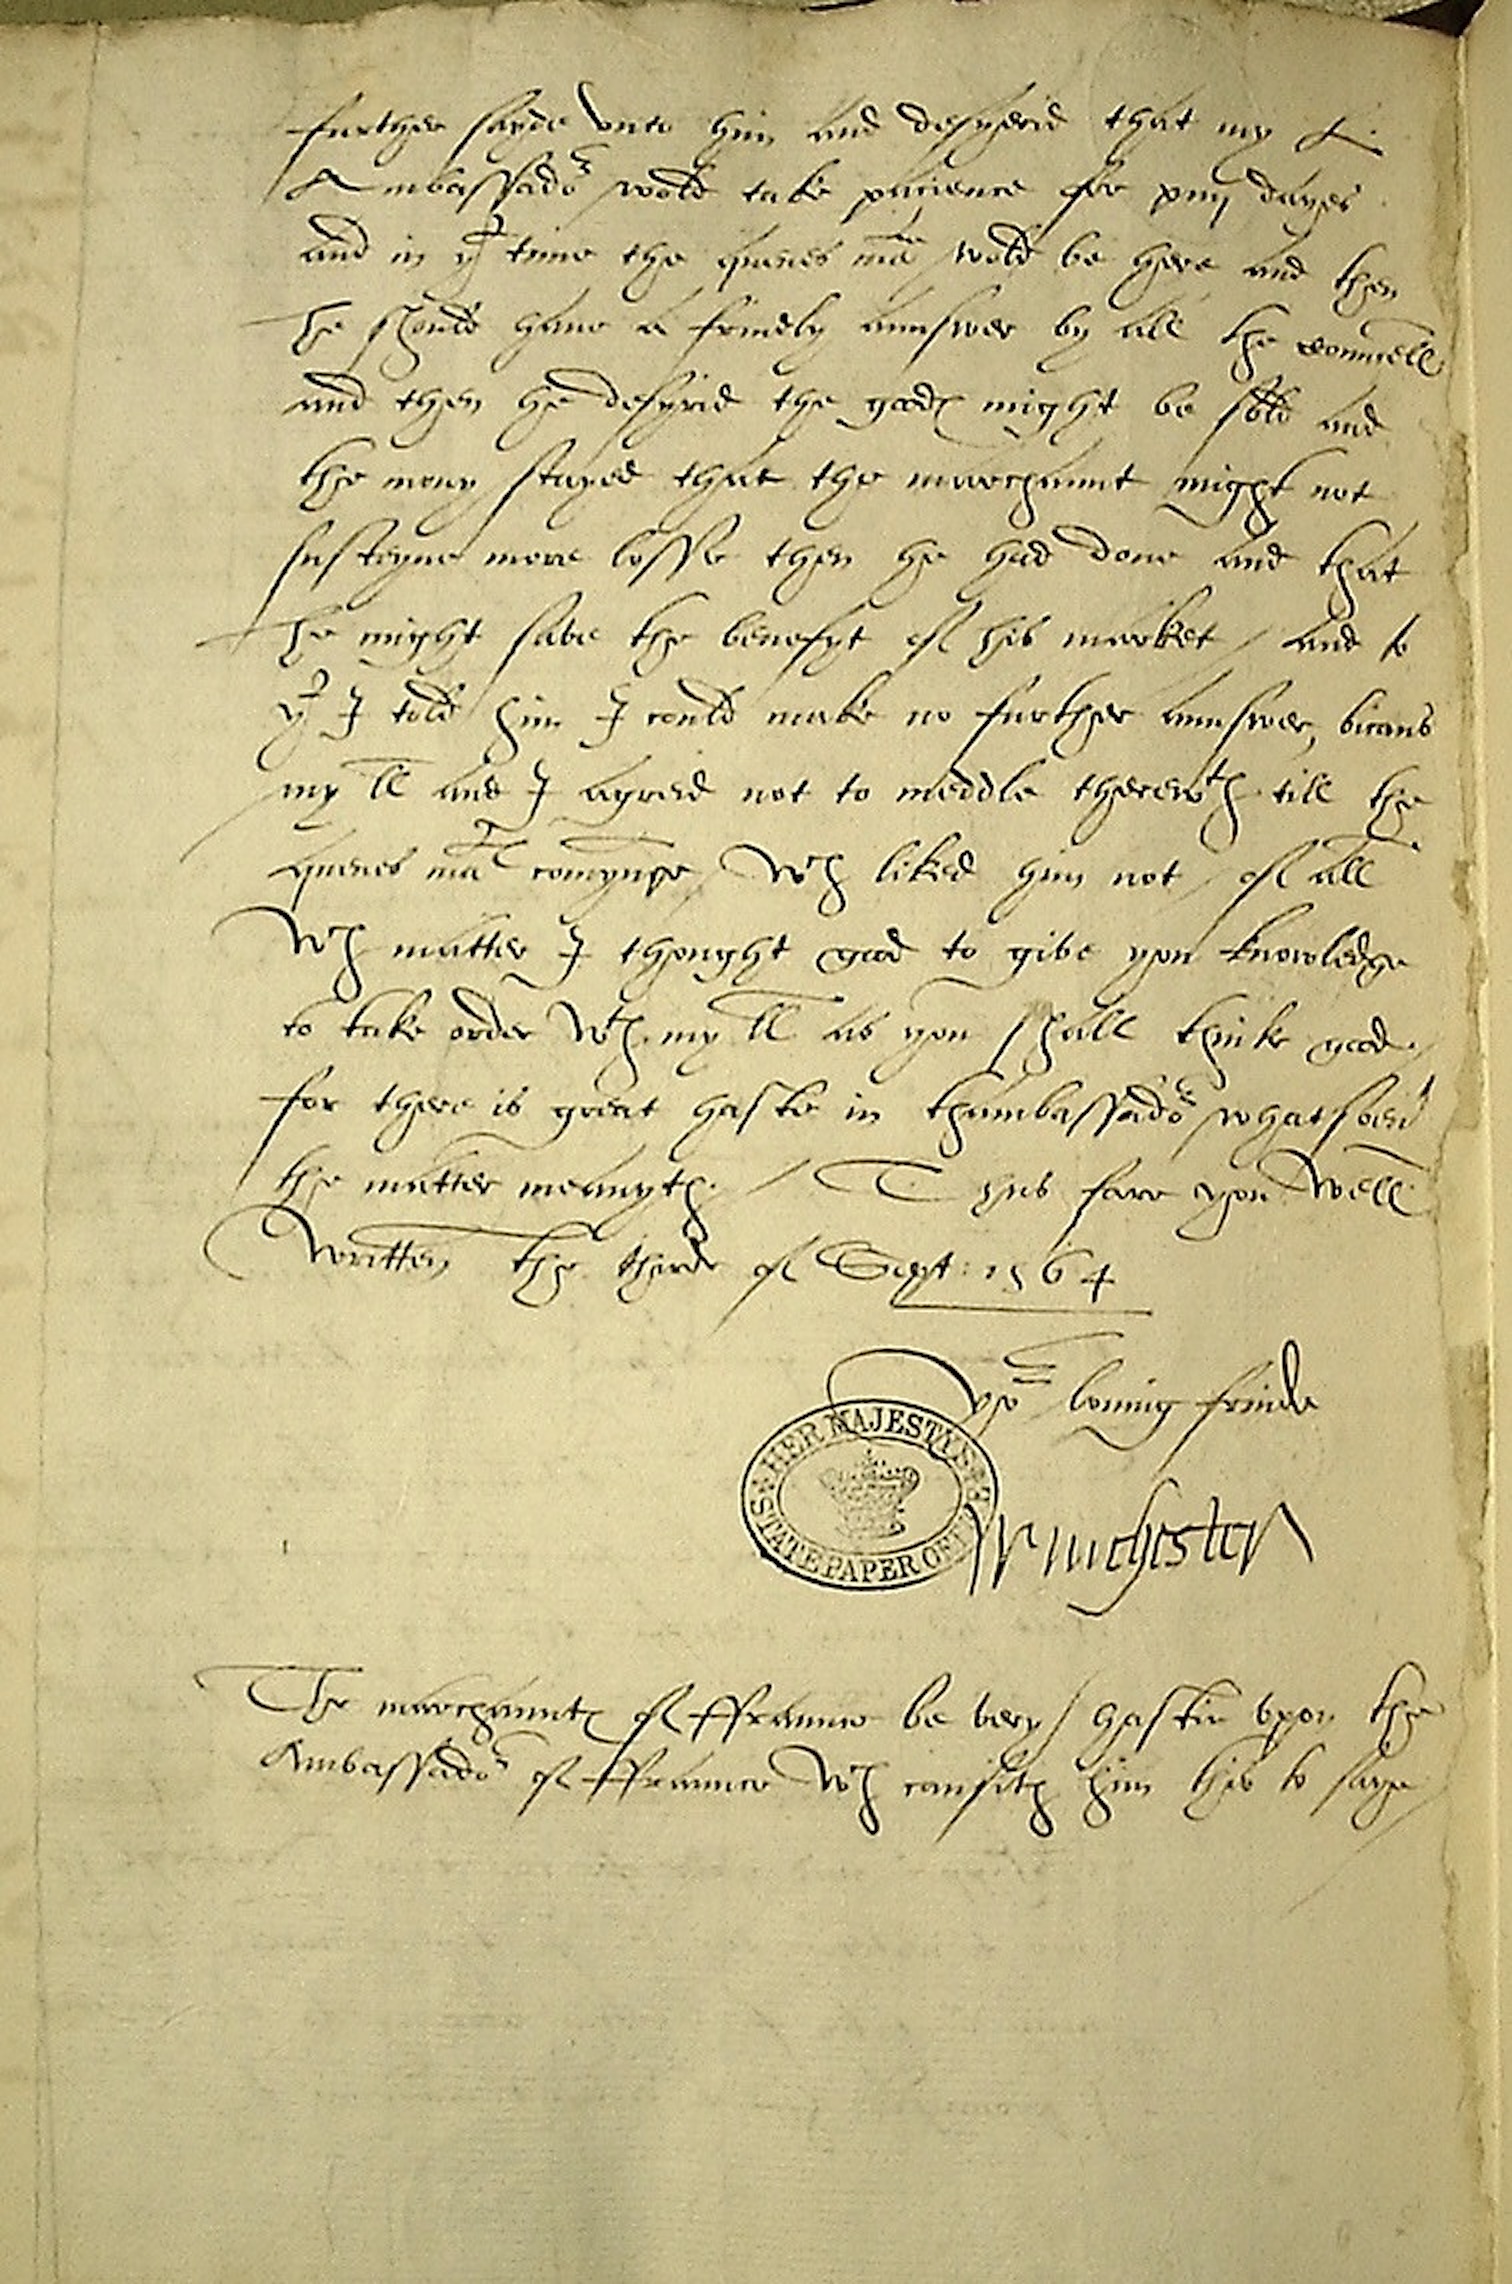 further sayde vnto him and desyerid that my L.
Ambassador wold take pacience for xiiij dayes
and in yt time the quenes mate wold be here and then
he should haue a frindly aunswer by all the counsell
and then he desyrid the goodes might be sold and
the mony stayed that the marchaunt might not
susteyne more losse then he had done and that
he might save the benefyt of his market / and so
yt I told him I could make no further aunswer, bicaus
my ll and I agreid not to meddle therewth till the
quenes mates comynge / wch liked him not / of all
wch matter I thought good to give you knowledge
to take order wth my ll as you shall thinke good /
for there is great haste in thambassador whatsoeuer
the matter meanyth. / Thus fare you well
written the thirde of Sept: 1564
yor louing frinde
Winchester
HER MAJESTY'S
STATE PAPER OFFICE
The marchauntes of ffraunce be very hastie vpon the
Ambassador of ffraunce wch causith him this to saye